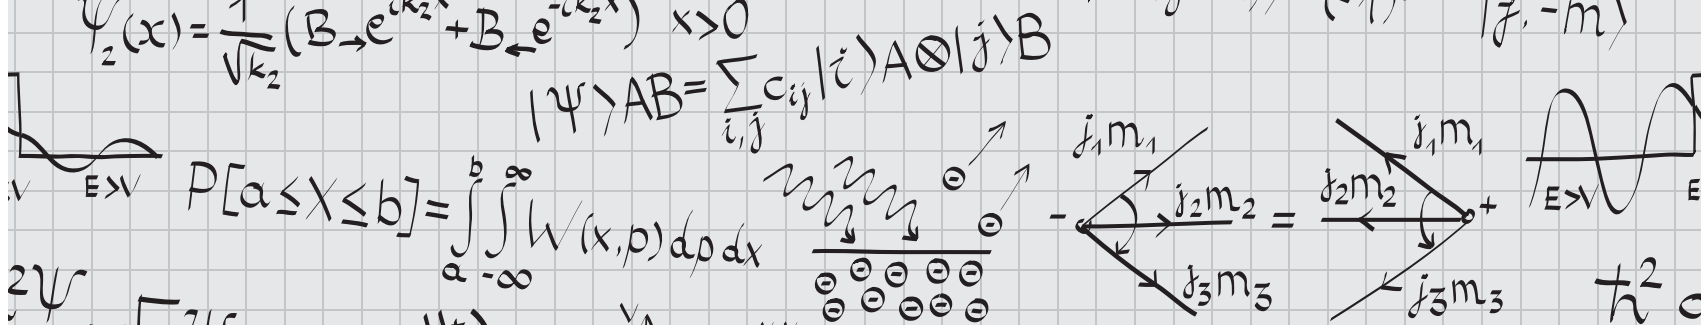 ψ₂(x) = 1/√k₂ (B→e^{ik₂x} + B←e^{-ik₂x}) x>0
|j, -m⟩
|Ψ⟩AB = ∑_{i,j} c_{ij}|i⟩A⊗|j⟩B
E>V
P[a≤X≤b] = ∫_a^b ∫_{-∞}^{∞} W(x,p) dp dx
⊖ ⊖
⊖ ⊖ ⊖ ⊖ ⊖
⊖ ⊖ ⊖ ⊖ ⊖
- j₁m₁ j₂m₂ j₃m₃ = j₁m₁ j₂m₂ j₃m₃ +
E>V
²Ψ
ħ²